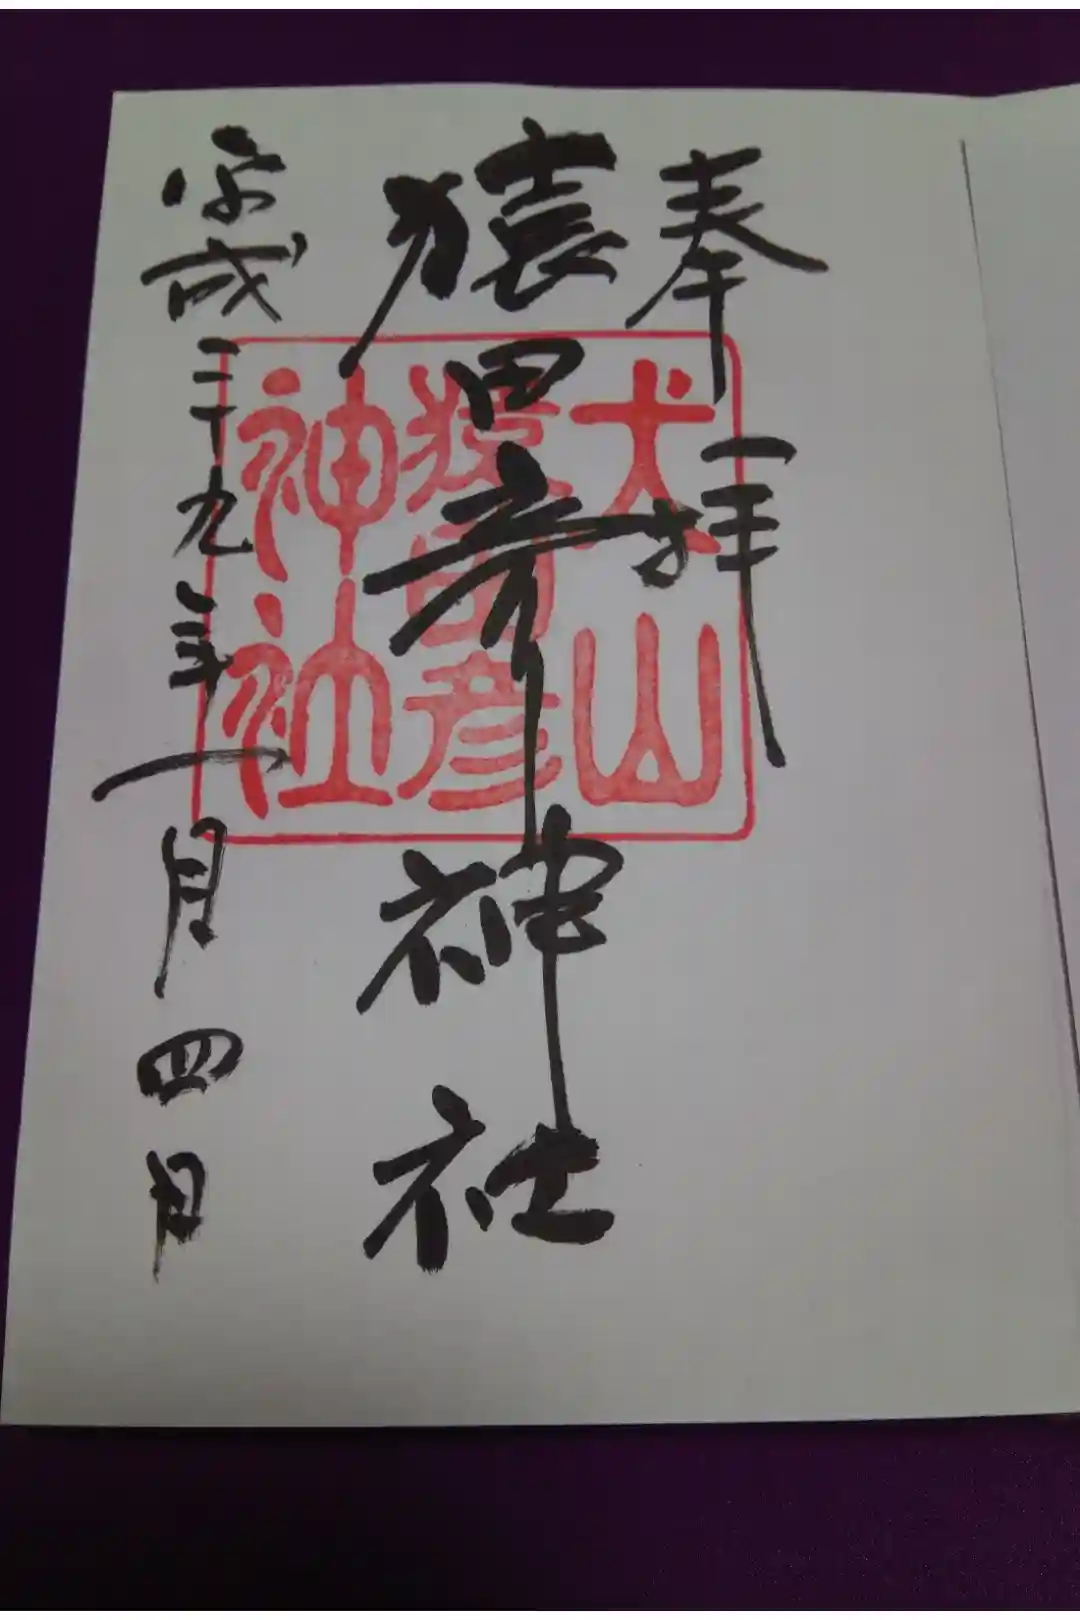 奉拝
猿田彦神社
平成二十九年一月四日
犬山
猿田彦
神社